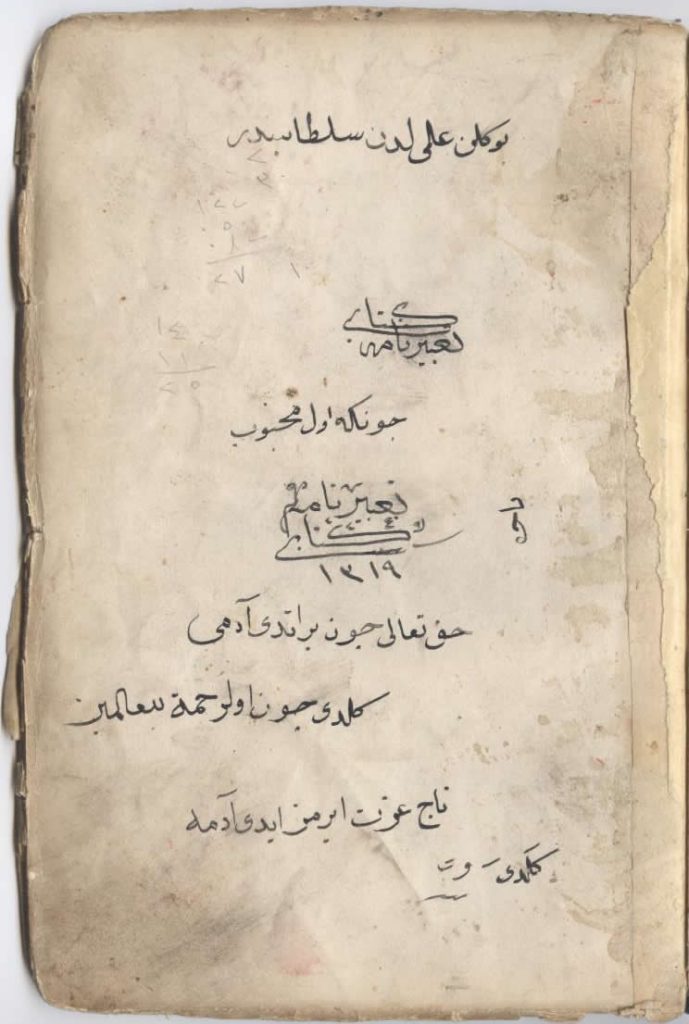 بو كلن علمی لدن سلطانیدر
كتابی
تعبيرنامه
جونكه اول محبوب
تعبيرنامه
كتابی
١٣١٩
حق تعالی جون يراتدی آدمی
كلدی جون اول رحمة للعالمين
تاج عزت ايرمز ايدی آدمه
كلدی